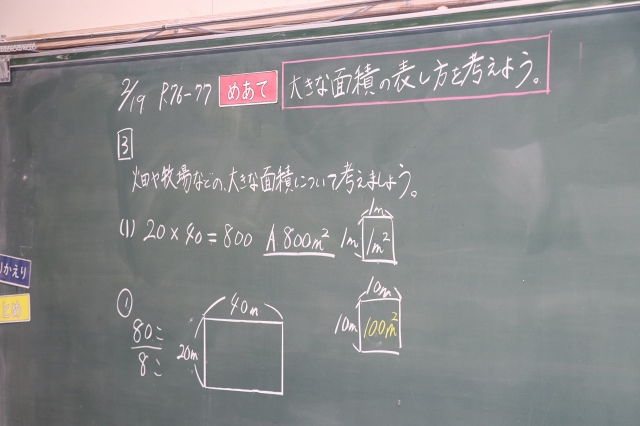 2/19 P.76-77 めあて 大きな面積の表し方を考えよう。
3
畑や牧場などの、大きな面積について考えましょう。
(1) 20×40=800 A 800m²
1m
1m
1m²
①
80こ
8こ
40m
20m
10m
10m
100m²
りかえり
とめ